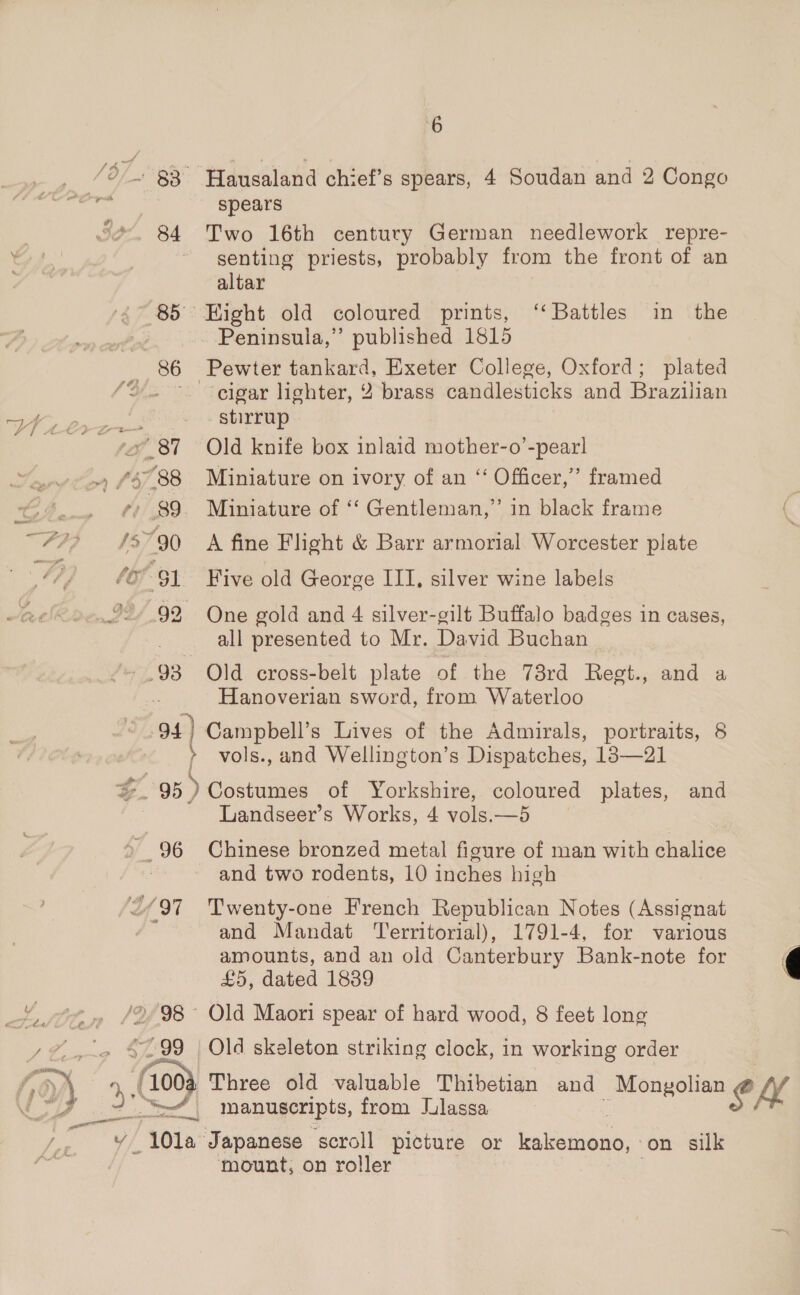 6
83 Hausaland chief's spears, 4 Soudan and 2 Congo
spears
84 Two 16th century German needlework repre-
senting priests, probably from the front of an
altar
85 Eight old coloured prints, “Battles in the
Peninsula,” published 1815
86 Pewter tankard, Exeter College, Oxford; plated
cigar lighter, 2 brass candlesticks and Brazilian
stirrup
87 Old knife box inlaid mother-o'-pearl
88 Miniature on ivory of an “Officer,” framed
89 Miniature of “Gentleman,” in black frame
15/- 90 A fine Flight & Barr armorial Worcester plate
91 Five old George III. silver wine labels
92 One gold and 4 silver-gilt Buffalo badges in cases,
all presented to Mr. David Buchan
93 Old cross-belt plate of the 73rd Regt., and a
Hanoverian sword, from Waterloo
94 } Campbell's Lives of the Admirals, portraits, 8
vols., and Wellington's Dispatches, 13—21
95 ) Costumes of Yorkshire, coloured plates, and
Landseer's Works, 4 vols.—5
96 Chinese bronzed metal figure of man with chalice
and two rodents, 10 inches high
97 Twenty-one French Republican Notes (Assignat
and Mandat Territorial), 1791-4, for various
amounts, and an old Canterbury Bank-note for
£5, dated 1839
98 Old Maori spear of hard wood, 8 feet long
99 Old skeleton striking clock, in working order
100 Three old valuable Thibetian and Mongolian
manuscripts, from Lulassa
101a Japanese scroll picture or kakemono, on silk
mount, on roller